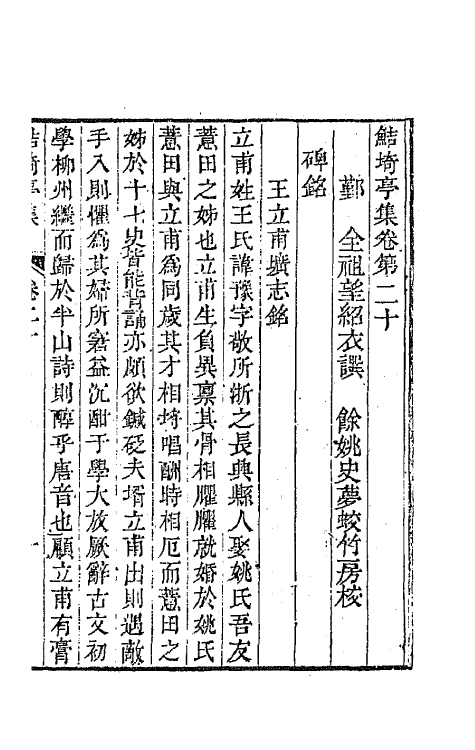 鮚埼亭集卷第二十
鄞 全祖望紹衣譔 餘姚史夢蛟竹房校
碑銘
王立甫壙志銘
立甫姓王氏諱豫字敬所浙之長興縣人娶姚氏吾友
薏田之姊也立甫生負異稟其骨相臞臞就婚於姚氏
薏田與立甫爲同歲其才相埒唱酬時相厄而薏田之
姊於十七史皆能背誦亦頗欲鍼砭夫壻立甫出則遇敵
手入則懼爲其婦所窘益沉酣于學大放厥辭古文初
學柳州繼而歸於半山詩則醇乎唐音也顧立甫有膏
鮚埼亭集 卷二十 一